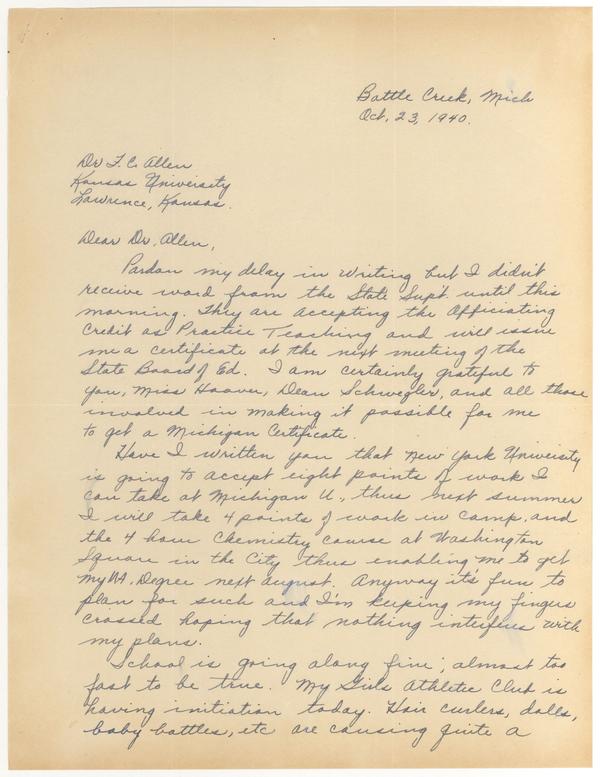 Battle Creek, Mich
Oct. 23, 1940.
Dr F. C. Allen
Kansas University
Lawrence, Kansas.
Dear Dr. Allen,
Pardon my delay in writing but I didn't
receive word from the State Supt. until this
morning. They are accepting the Officiating
Credit as Practice Teaching and will issue
me a certificate at the next meeting of the
State Board of Ed. I am certainly grateful to
you, Miss Hoover, Dean Schwegler, and all those
involved in making it possible for me
to get a Michigan Certificate.
Have I written you that New York University
is going to accept eight points of work I
can take at Michigan U., thus next summer
I will take 4 points of work in camp, and
the 4 hour Chemistry course at Washington
Square in the City thus enabling me to get
my MA. Degree next august. Anyway it's fun to
plan for such and I'm keeping my fingers
crossed hoping that nothing interferes with
my plans.
School is going along fine; almost too
fast to be true. My Girls Athletic Club is
having initiation today. Hair curlers, dolls,
baby bottles, etc are causing quite a